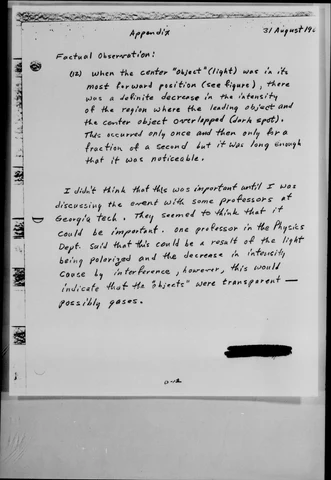 Appendix
31 August 19
Factual Observation:
(12) When the center "object" (light) was in its
most forward position (see figure), there
was a definite decrease in the intensity
of the region where the leading object and
the center object overlapped (dark spot).
This occurred only once and then only for a
fraction of a second but it was long enough
that it was noticeable.
I didn't think that this was important until I was
discussing the event with some professors at
Georgia Tech. They seemed to think that it
could be important. One professor in the Physics
Dept. said that this could be a result of the light
being polarized and the decrease in intensity
cause by interference, however, this would
indicate that the "objects" were transparent —
possibly gases.